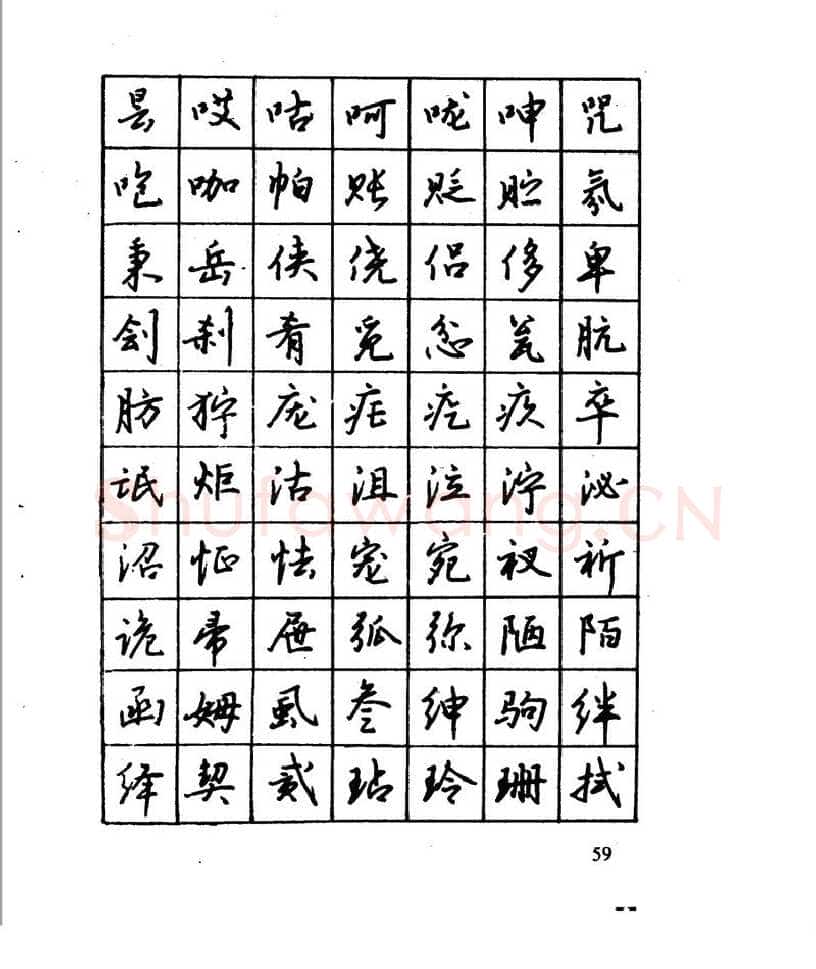 昙哎咕呵咙呻咒
咆咖帕账贬贮氛
秉岳侠侥侣侈卑
刽刹肴觅忿瓮肮
肪狞庞疟疙疚卒
氓炬沽沮泣泞泌
沼怔怯宠宛衩祈
诡帚屉弧弥陋陌
函姆虱叁绅驹绊
绎契贰玷玲珊拭
Shufawang.CN
59